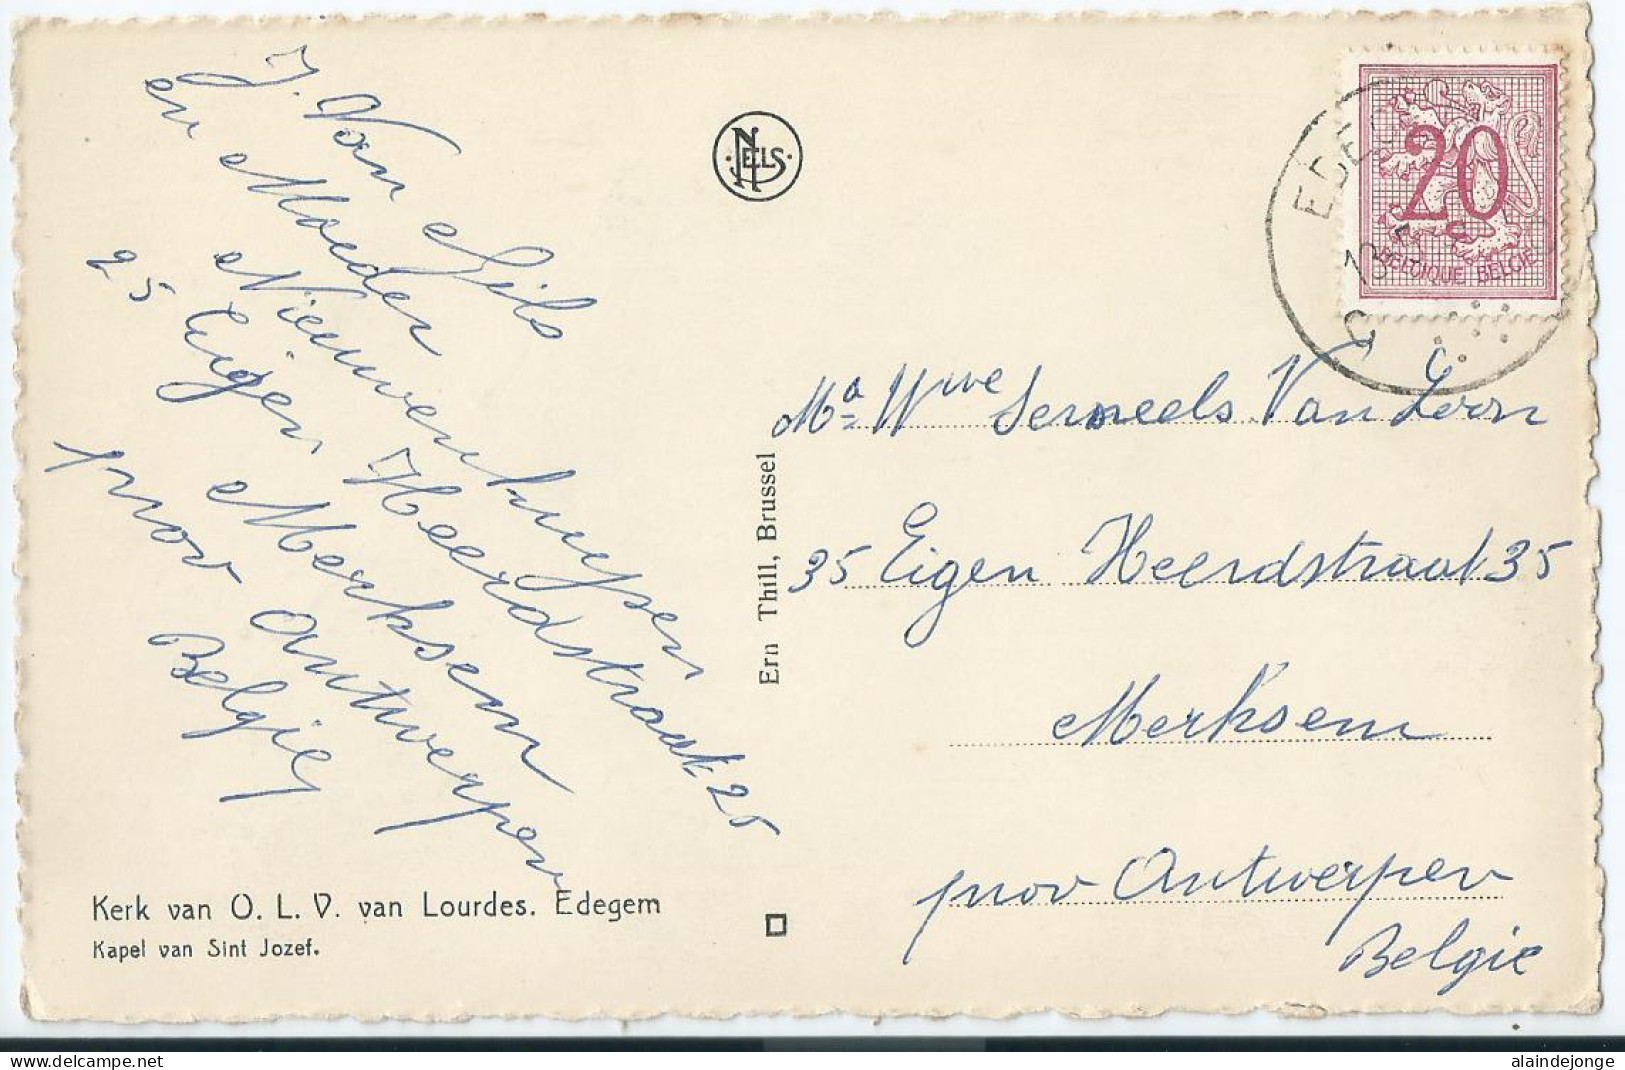 J. Van Gils
en Moeder
Nieuwenhuysen
25 Eigen Heerdstraat 25
Merksem
prov Antwerpen
Belgie
NELS
Ern Thill, Brussel
20
BELGIQUE BELGIË
Ma Wwe Serneels Van Loon
35 Eigen Heerdstraat 35
Merksem
prov Antwerpen
Belgie
Kerk van O. L. V. van Lourdes. Edegem
Kapel van Sint Jozef.
alaindejonge